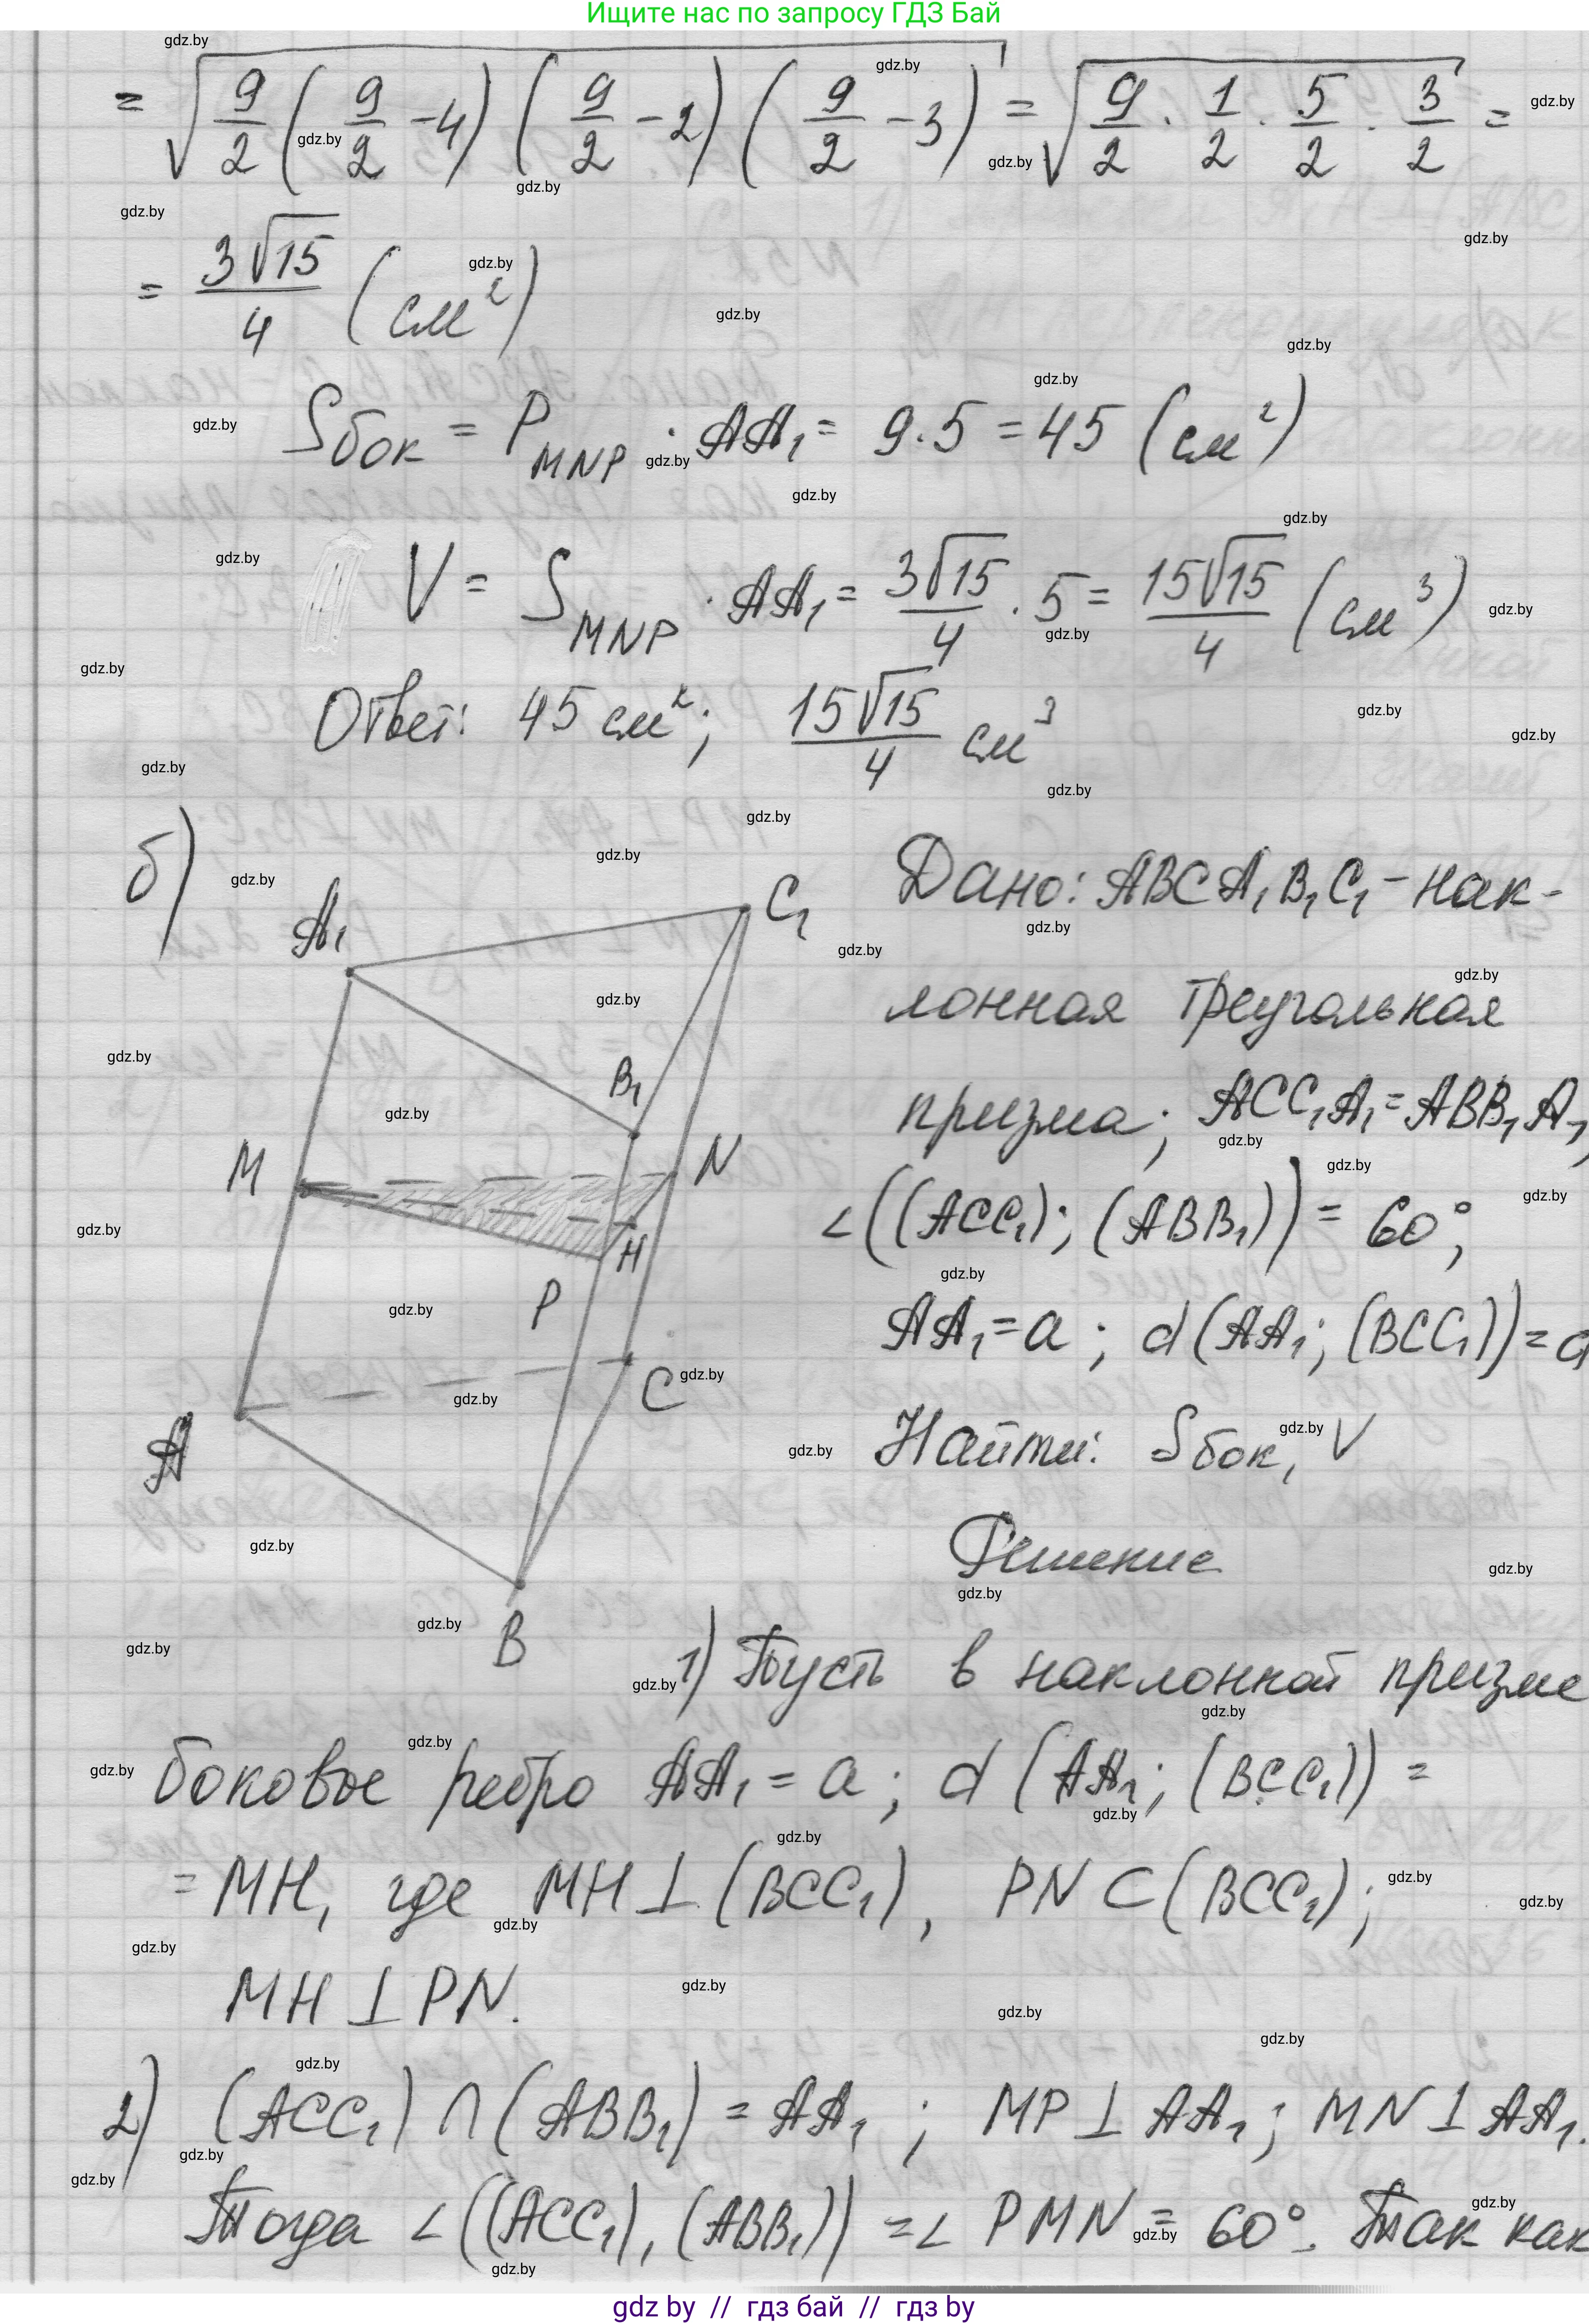 Ищите нас по запросу ГДЗ Бай
= √(9/2 (9/2 - 4) (9/2 - 2) (9/2 - 3)) = √(9/2 · 1/2 · 5/2 · 3/2) =
= 3√15/4 (см²)
Sбок = P_MNP · AA₁ = 9·5 = 45 (см²)
V = S_MNP · AA₁ = 3√15/4 · 5 = 15√15/4 (см³)
Ответ: 45 см²; 15√15/4 см³
б)
A₁
C₁
B₁
M
N
H
P
C
A
B
Дано: ABCA₁B₁C₁ - нак-
лонная треугольная
призма; ACC₁A₁ = ABB₁A₁,
∠((ACC₁); (ABB₁)) = 60°;
AA₁ = a; d(AA₁; (BCC₁)) = d
Найти: Sбок, V
Решение
1) Пусть в наклонной призме
боковое ребро AA₁ = a; d (AA₁; (BCC₁)) =
= MH, где MH ⊥ (BCC₁), PN ⊂ (BCC₁);
MH ⊥ PN.
2) (ACC₁) ∩ (ABB₁) = AA₁; MP ⊥ AA₁; MN ⊥ AA₁.
Тогда ∠((ACC₁), (ABB₁)) = ∠ PMN = 60°. Так как
gdz by // гдз бай // гдз by